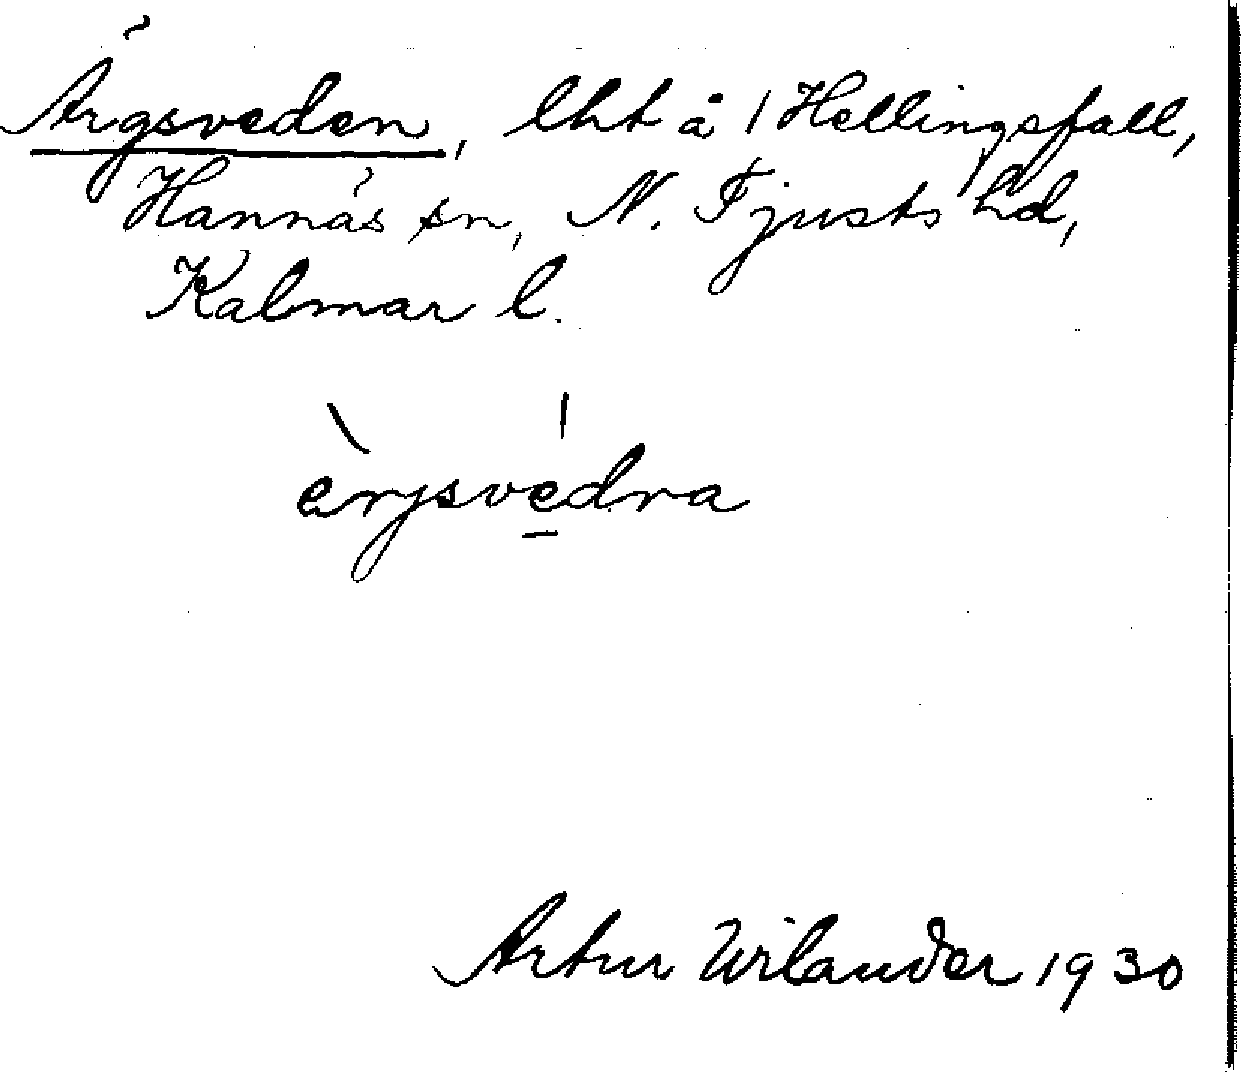 Ärgsveden, lht å 1 Hellingsfall,
Hannäs sn, N. Tjusts hd,
Kalmar l.
èrjsvédna
Artur Wilander 1930